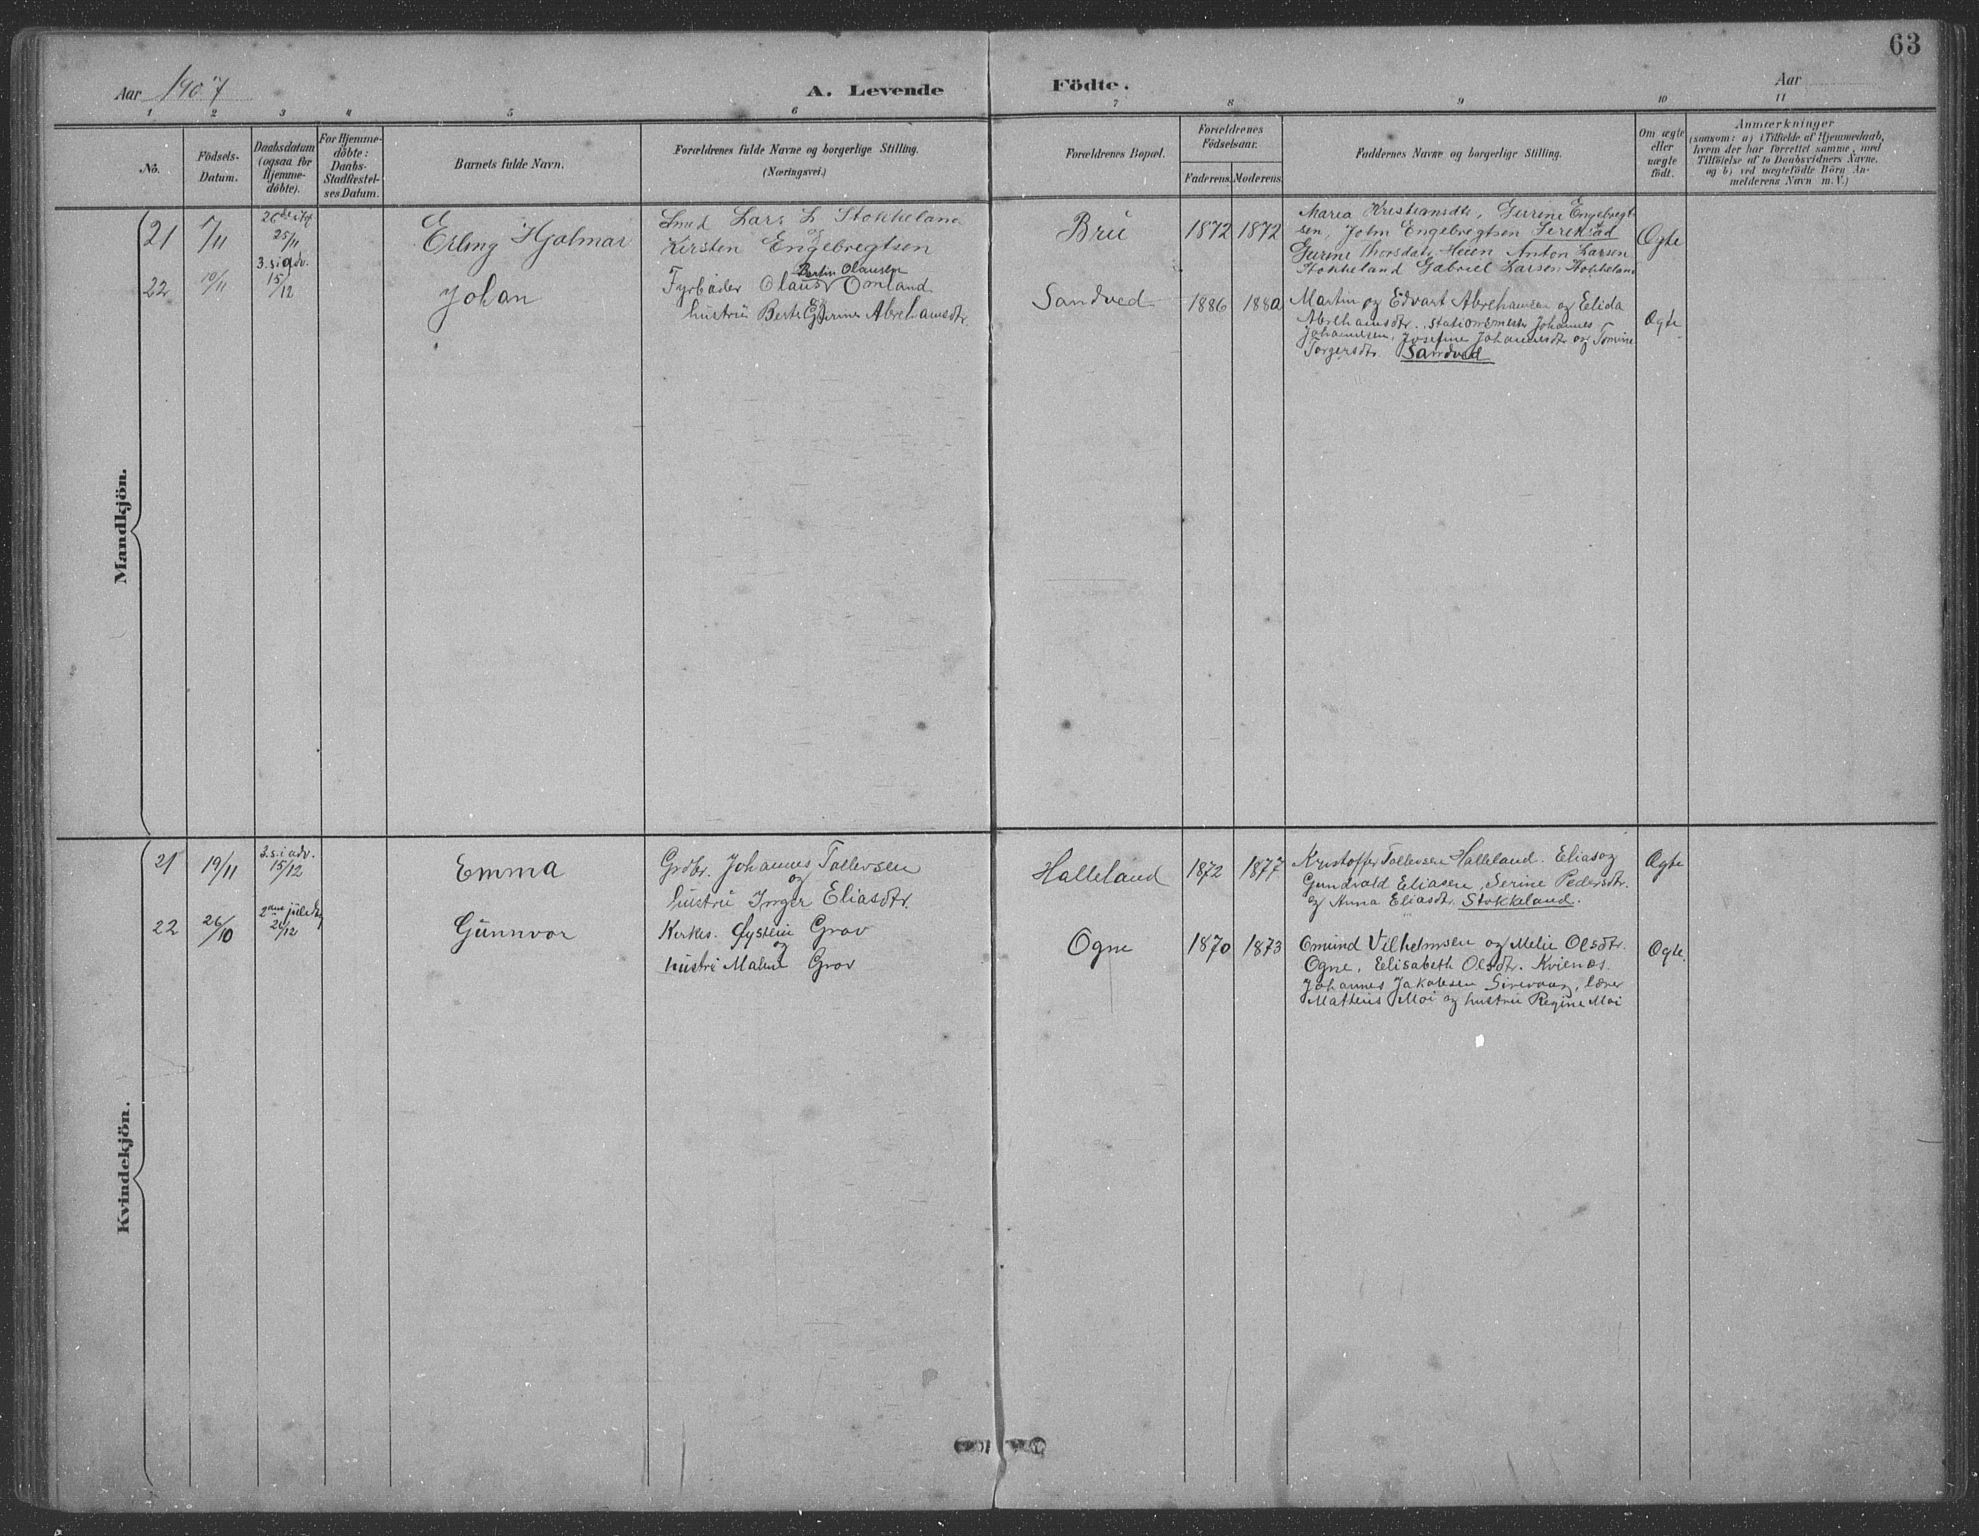 63
Aar 1907
A. Levende Födte.
Aar
1 2 3 4 5 6 7 8 9 10 11
No.
Födsels-Datum.
Daabsdatum (ogsaa for Hjemme-döbte).
For Hjemme-döbte: Daabs-Stadfæstel-ses Datum.
Barnets fulde Navn.
Forældrenes fulde Navne og borgerlige Stilling.
(Næringsvei.)
Forældrenes Bopæl.
Forældrenes Födselsaar.
Faderens. Moderens.
Faddernes Navne og borgerlige Stilling.
Om ægte eller uægte födt.
Anmærkninger
(saasom: a) i Tilfælde af Hjemmedaab,
hvem der har forrettet samme, med
Tilföielse af to Daabsvidners Navne,
og b) ved uægtefödte Börn An-
melderens Navn m. V.)
Mandkjön.
21 7/11 25/11 Erling Hjalmar
Smed Lars L. Stokkeland
og
Kirsten Engebregtsen
Bru 1872 1872
Maria Kristiansdtr, Gurine Engebregt
sen, John Engebregtsen
Gurine Thorsdatr Anton Larsen
Stokkeland Gabriel Larsen Stokkeland
Ægte
22 10/11 3. s. i adv. 15/12 Johan
Bertin Olausen
Fyrbøder Olaus Omland
hustru Berte Gurine Abrahamsdtr.
Sandved 1886 1880
Martin og Edvart Abrahamsen og Elida
Abrahamsdtr. Stationsmester Johannes
Johannesen, Josefine Johannesdtr og Tomine
Torgersdtr. Sandved
Ægte
Kvindekjön.
21 19/11 3. s. i adv. 15/12 Emma
Grdbr. Johannes Tollevsen
og
hustru Inger Eliasdtr.
Halleland 1872 1877
Kristoffer Tollevsen Halleland. Elias og
Gundvald Eliasen, Serine Pedersdtr.
og Anna Eliasdtr. Stokkeland.
Ægte
22 26/10 2den juledag 26/12 Gunnvor
Kirkes. Øystein Grov
og
hustru Malene Grov
Ogne 1870 1873
Omund Vilhelmsen og Melie Olsdtr.
Ogne, Elisabeth Olsdtr. Kvienes.
Johannes Jakobsen Sirevaag, lærer
Matheus Moi og hustru Regine Moi
Ægte.